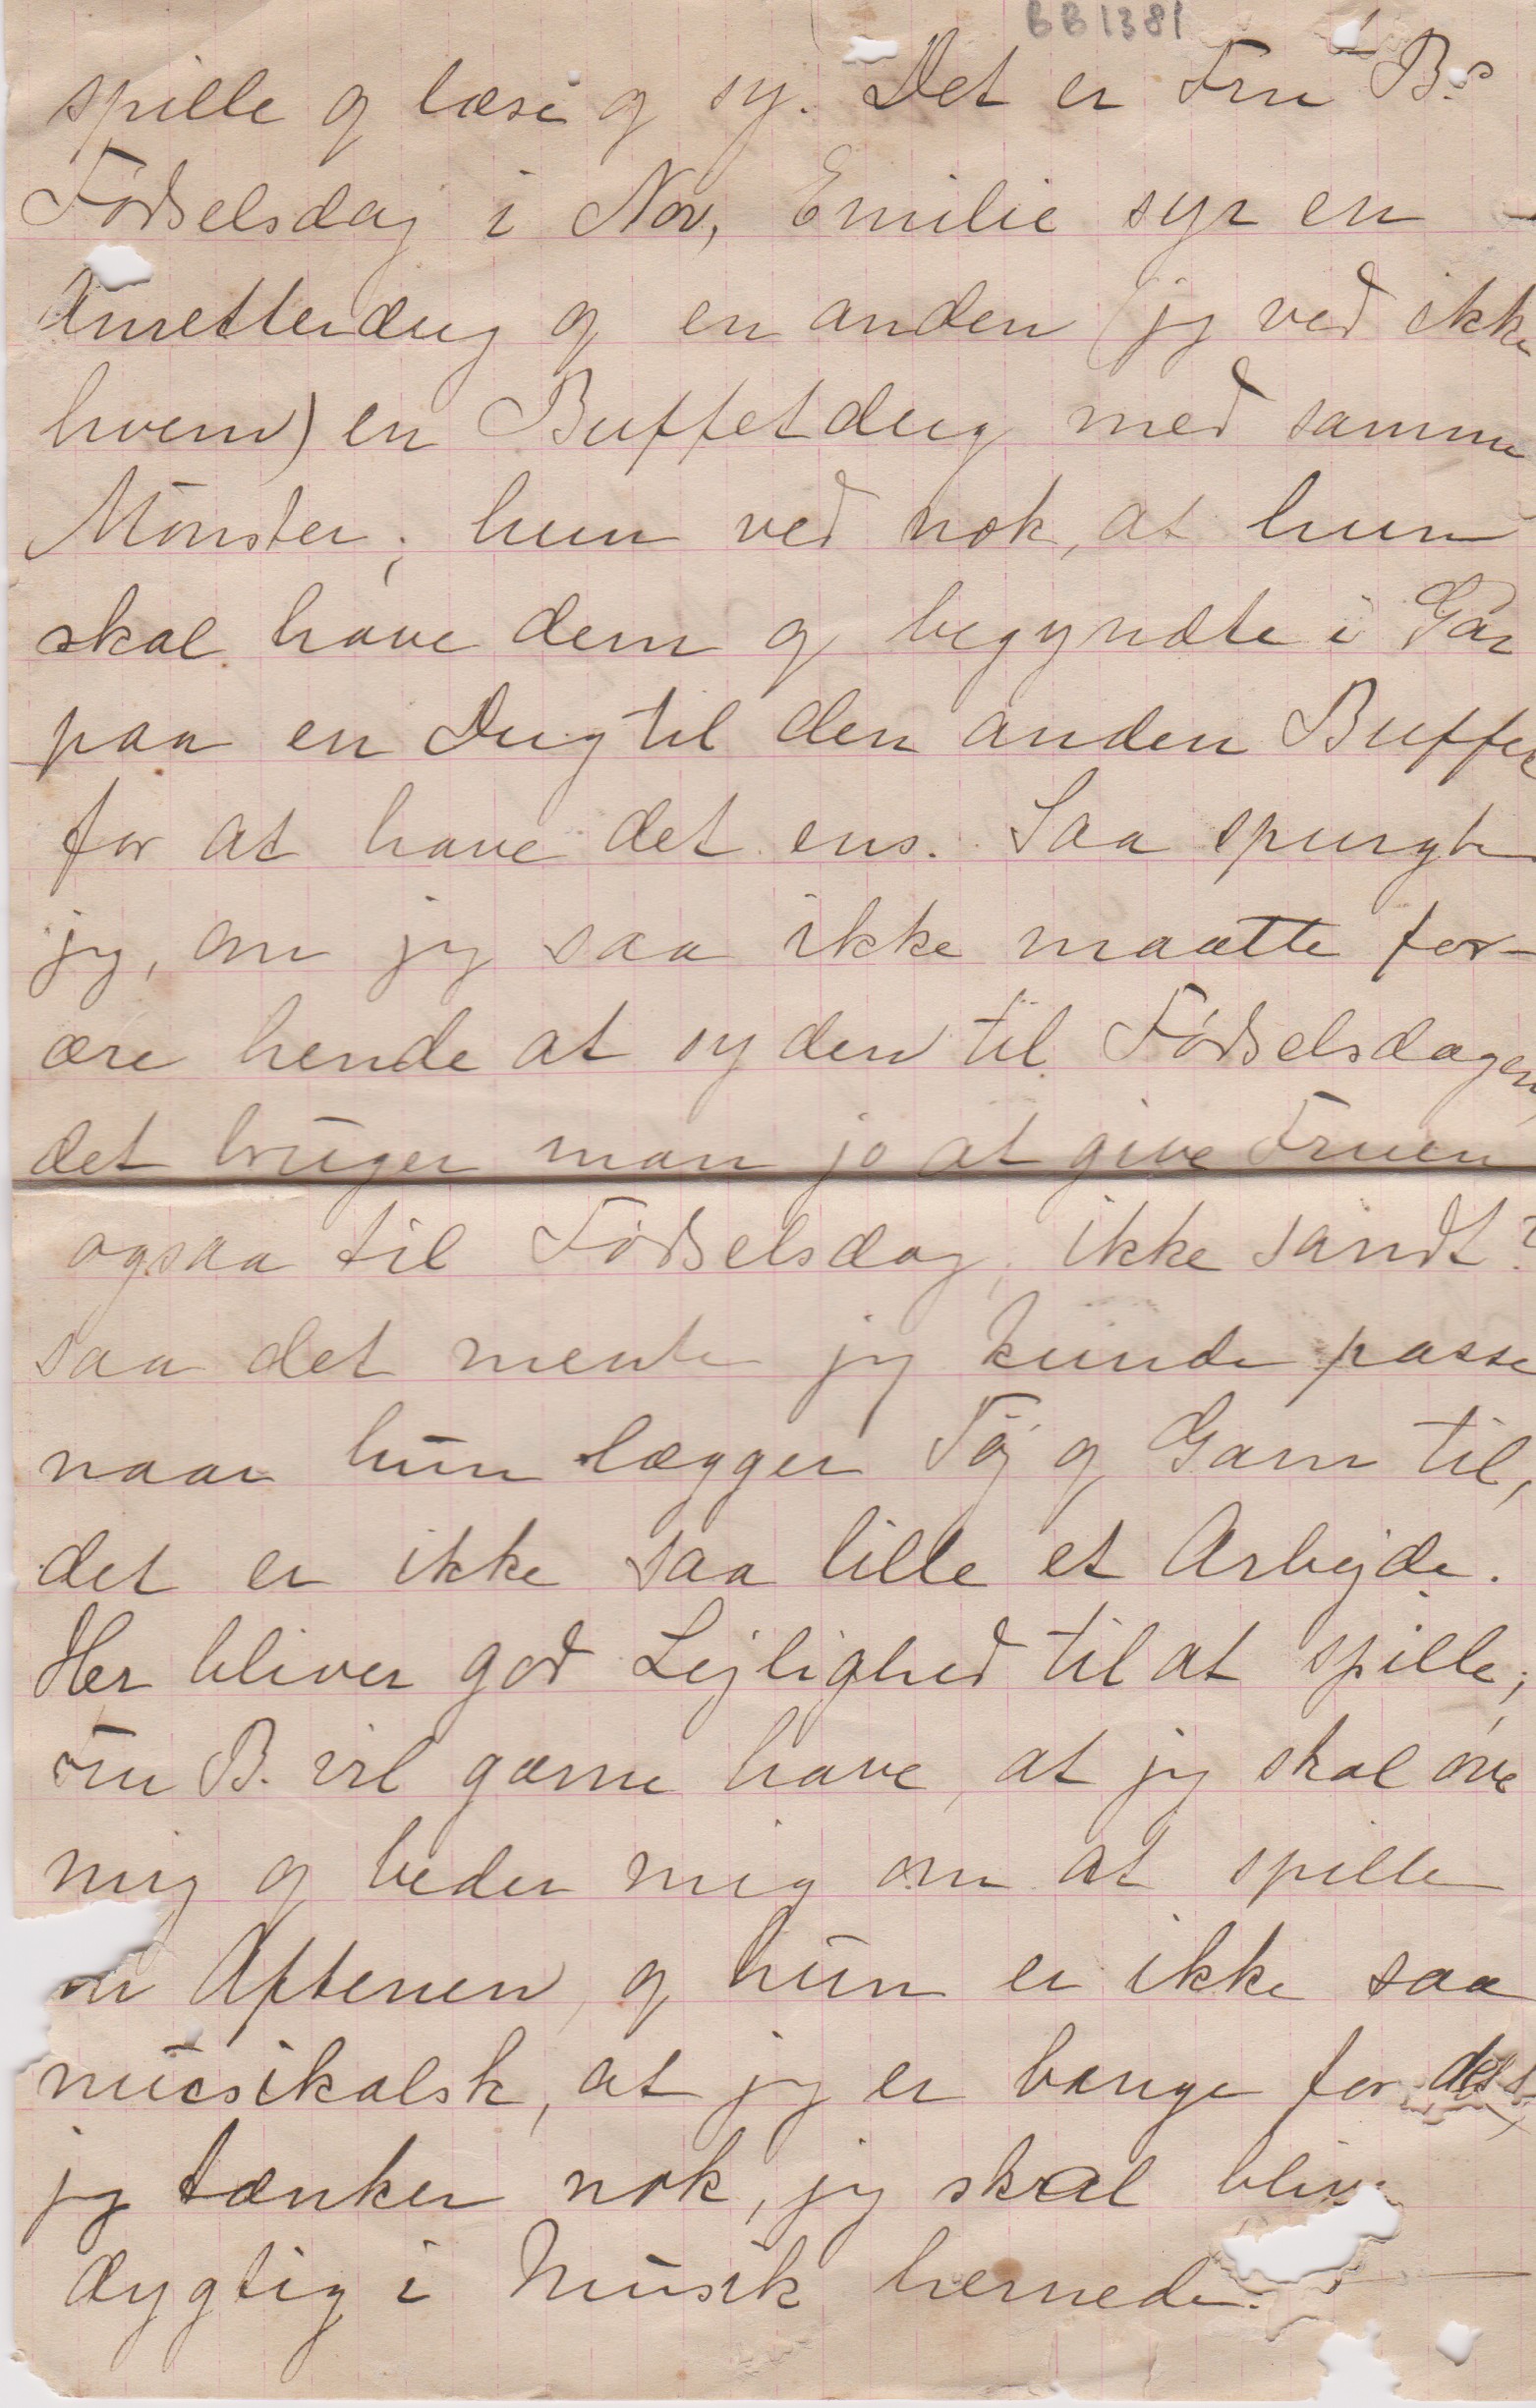 BB1381
spille og læse og sy. Det er Fru B.s
Fødselsdag i Nov, Emilie syr en
Anretterdug og en anden (jeg ved ikke
hvem) en Buffetdug med samme
Mønster; hun ved nok, at hun
skal have dem og begyndte i Gaar
paa en Dug til den anden Buffet
for at have det ens. Saa spurgte
jeg, om jeg saa ikke maatte for-
ære hende at sy den til Fødselsdagen,
det bruger man jo at give Fruen
ogsaa til Fødselsdag, ikke sandt?
saa det mente jeg kunde passe
naar hun lægger Tøj og Garn til,
det er ikke saa lille et Arbejde.
Her bliver god Lejlighed til at spille;
Fru B. vil gærne have, at jeg skal øve
mig og beder mig om at spille
om Aftenen, og hun er ikke saa
musikalsk, at jeg er bange for det
jeg tænker nok, jeg skal blive
dygtig i Musik hernede.